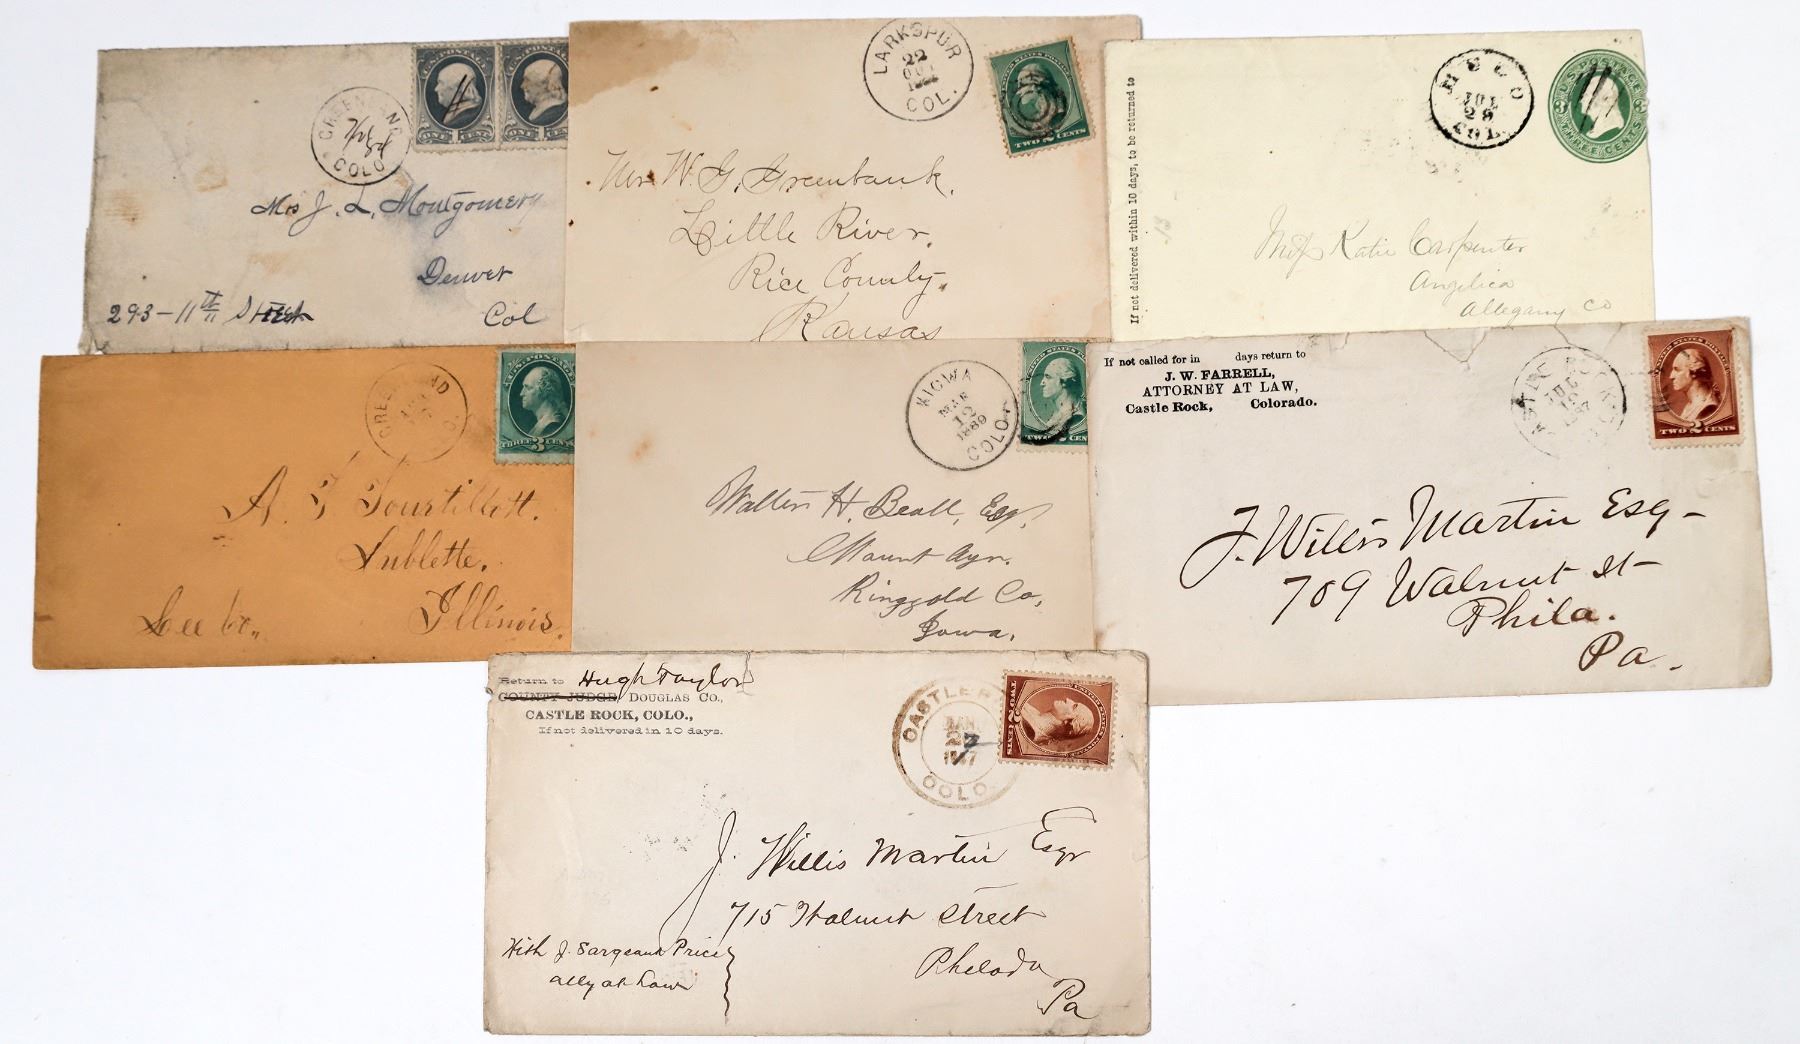 U.S. POSTAGE
ONE 1 CENT
U.S. POSTAGE
ONE 1
GREENLAND
COLO
Mrs J. L. Montgomery
Denver
293-11th Street
Col
LARKSPUR
22
COL.
UNITED STATES POSTAGE
TWO 2 CENTS
Mr W. G. Greenbank.
Little River,
Rice County,
Kansas
If not delivered within 10 days, to be returned to
HUGO
JUL
28
COL
U.S. POSTAGE
3 THREE CENTS
Miss Katie Carpenter
Angelica
Allegany Co
GREENLAND
U.S. POSTAGE
THREE 3 CENTS
A. F Tourtillott.
Sublette.
Lee Co.,
Illinois.
KIOWA
MAR
12
1889
COLO.
Walter H. Beall, Esq.
Mount Ayr.
Ringgold Co,
Iowa.
If not called for in days return to
J. W. FARRELL,
ATTORNEY AT LAW,
Castle Rock, Colorado.
CASTLE ROCK
UNITED STATES POSTAGE
TWO 2 CENTS
J. Willis Martin Esq-
709 Walnut St-
Phila.
Pa.
Return to Hugh Taylor
COUNTY JUDGE, DOUGLAS CO.,
CASTLE ROCK, COLO.,
If not delivered in 10 days.
CASTLE R
JAN
1887
COLO.
UNITED STATES POSTAGE
TWO 2 CENTS
J. Willis Martin Esqr
715 Walnut Street
Philada
Pa
With J. Sergeant Price
atty at Law